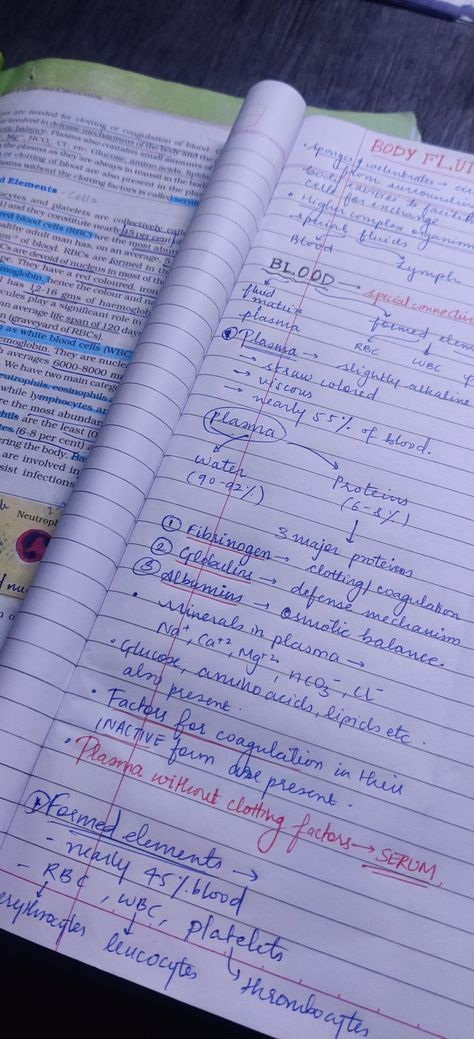 are needed for clotting or coagulation of blood
Plasma also contains small amounts of
Glucose, amino acids,
the plasma as they are always in transit in the body
or clotting of blood are also present in the
plasma without the clotting factors is called
d Elements Cells
and platelets are collectively
and they constitute nearly 45 per cent of
red blood cells (RBC) are the most
healthy adult man has, on an average,
of blood. RBCs are formed in the
are devoid of nucleus in most of
They have a red coloured, iron
hence the colour and
has 12-16 gms of
play a significant role in
an average life span of 120 days
(graveyard of RBCs).
as white blood cells (WBC
They are
averages 6000-8000
We have two main
neutrophils, eosinophils
while lymphocytes
are the most
are the least
(6-8 per cent)
the body.
are involved in
infections
Neutroph
BODY FLUI
• Sponges, coelentrates -
from surroundin
body cavities to facilit
cells for exchange
• Higher complex organism
special fluids
Blood Lymph
BLOOD → special connectiv
fluid
matrix
plasma
formed elem
RBC WBC
Plasma → slightly alkaline
→ straw colored
→ viscous
→ nearly 55% of blood.
Plasma
Water
(90-92%)
Proteins
(6-8%)
3 major proteins
① Fibrinogen → clotting/coagulation
② Globulins → defense mechanism
③ Albumins → osmotic balance.
• Minerals in plasma →
Na⁺, Ca⁺², Mg⁺², HCO₃⁻, Cl⁻
• Glucose, amino acids, lipids etc.
also present.
• Factors for coagulation in their
INACTIVE form are present.
• Plasma without clotting factors → SERUM.
Formed elements →
- nearly 45% blood
- RBC, WBC, platelets
erythrocytes leucocytes thrombocytes